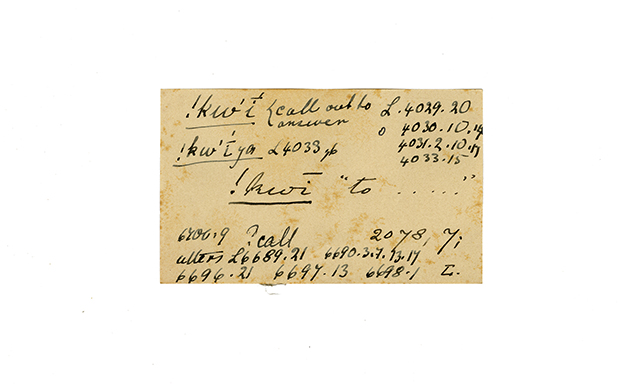 !kw'ī {call out to L. 4029.20
answer o 4030.10.14
!kw'ī ya L 4033 4031.2.10.17
4033.15
!kwī "to ....."
6700.9 ?call 2078, 7;
utters L6689.21 6690.3.7.13.17
6696.21 6697.13 6698.1 L.